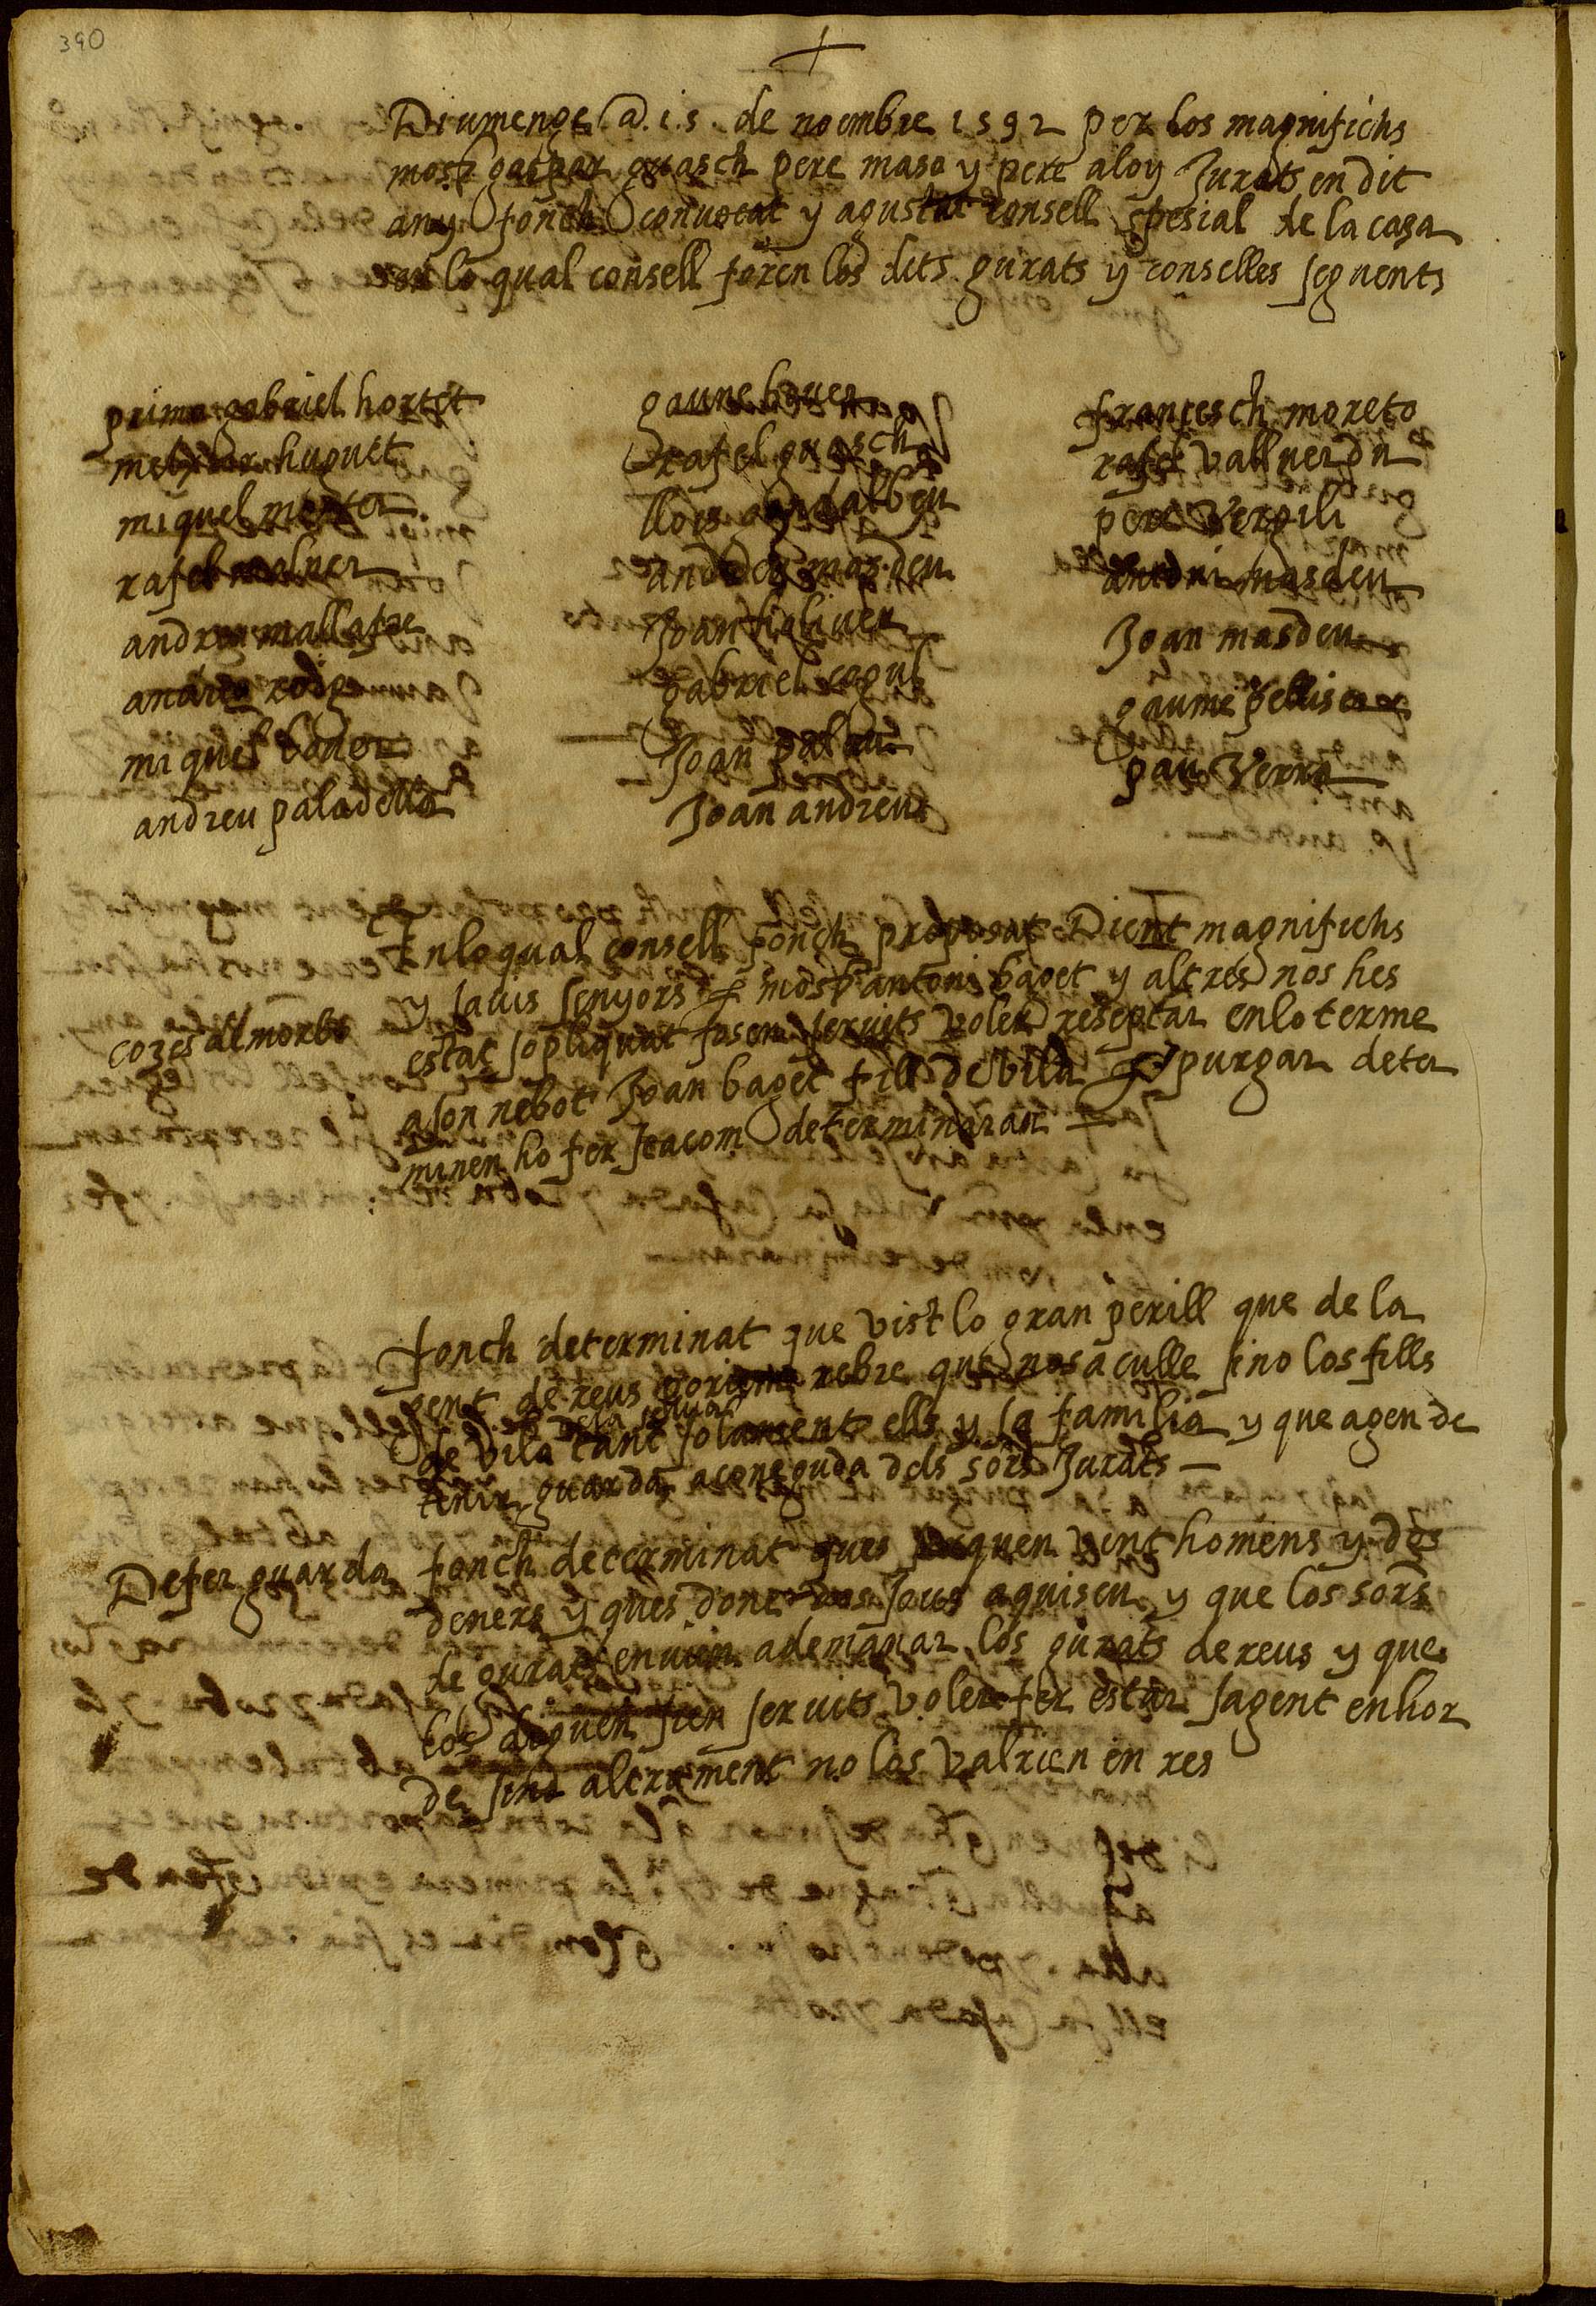 390
+
Diumenge a .15. de noembre 1592 per los magnifichs
mosr gaspar guasch pere maso y pere aloy Jurats en dit
any fonch convocat y agustat consell spesial de la casa
en lo qual consell foren los dits gurats y conselles seguents
primo gabriel hortet
melxior huguet
miquel merter
rafel moliner
andreu mallafre
andreu roig
miquel boder
andreu paladella
gaume bover
rafel guasch
llois
andreu masdeu
Joan figliver
gabriel cogul
Joan palau
Joan andreu
francesch moreto
rafel vallverdu
pere vergili
antoni masdeu
Joan masdeu
gaume pellise
pau Verra
En lo qual consell fonch proposat Dient magnifichs
y savis senyors per mosr antoni baget y altres nos hes
cozes del morbo
estat sopliquat fosem servits voler reseptar en lo terme
a son nebot Joan baget fill de vila per purgar deter
minen ho fer sea com determinaran
fonch determinat que vist lo gran perill que de la
gent de reus poriem rebre que nos aculle sino los fills
de vila tant solament ells y sa familia y que agen de
tenir guarda a coneguda dels sors Jurats
De fer guarda
fonch determinat ques vint homens y dos
deners y ques done dos sous a quiseu y que los sors
de gurats envien a demanar los gurats de reus y que
los diguen sien servits voler fer estar sa gent en hor
de sino altrament no los valrien en res